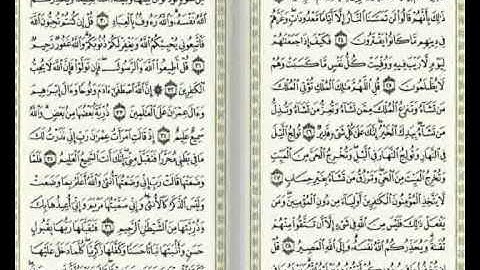 ذَٰلِكَ بِأَنَّهُمْ قَالُوا لَن تَمَسَّنَا النَّارُ إِلَّا أَيَّامًا مَّعْدُودَاتٍ وَغَرَّهُمْ
فِي دِينِهِم مَّا كَانُوا يَفْتَرُونَ ٢٤ فَكَيْفَ إِذَا جَمَعْنَاهُمْ
لِيَوْمٍ لَّا رَيْبَ فِيهِ وَوُفِّيَتْ كُلُّ نَفْسٍ مَّا كَسَبَتْ وَهُمْ
لَا يُظْلَمُونَ ٢٥ قُلِ اللَّهُمَّ مَالِكَ الْمُلْكِ تُؤْتِي الْمُلْكَ
مَن تَشَاءُ وَتَنزِعُ الْمُلْكَ مِمَّن تَشَاءُ وَتُعِزُّ مَن تَشَاءُ وَتُذِلُّ
مَن تَشَاءُ بِيَدِكَ الْخَيْرُ إِنَّكَ عَلَىٰ كُلِّ شَيْءٍ قَدِيرٌ ٢٦ تُولِجُ اللَّيْلَ
فِي النَّهَارِ وَتُولِجُ النَّهَارَ فِي اللَّيْلِ وَتُخْرِجُ الْحَيَّ مِنَ الْمَيِّتِ
وَتُخْرِجُ الْمَيِّتَ مِنَ الْحَيِّ وَتَرْزُقُ مَن تَشَاءُ بِغَيْرِ حِسَابٍ
٢٧ لَّا يَتَّخِذِ الْمُؤْمِنُونَ الْكَافِرِينَ أَوْلِيَاءَ مِن دُونِ الْمُؤْمِنِينَ وَمَن
يَفْعَلْ ذَٰلِكَ فَلَيْسَ مِنَ اللَّهِ فِي شَيْءٍ إِلَّا أَن تَتَّقُوا مِنْهُمْ
تُقَاةً وَيُحَذِّرُكُمُ اللَّهُ نَفْسَهُ وَإِلَى اللَّهِ الْمَصِيرُ ٢٨ قُلْ إِن
اللَّهُ نَفْسَهُ وَاللَّهُ رَءُوفٌ بِالْعِبَادِ ٣٠ قُلْ إِن كُنتُمْ تُحِبُّونَ اللَّهَ
فَاتَّبِعُونِي يُحْبِبْكُمُ اللَّهُ وَيَغْفِرْ لَكُمْ ذُنُوبَكُمْ وَاللَّهُ غَفُورٌ رَّحِيمٌ
٣١ قُلْ أَطِيعُوا اللَّهَ وَالرَّسُولَ فَإِن تَوَلَّوْا فَإِنَّ اللَّهَ لَا يُحِبُّ
الْكَافِرِينَ ٣٢ إِنَّ اللَّهَ اصْطَفَىٰ آدَمَ وَنُوحًا وَآلَ إِبْرَاهِيمَ
وَآلَ عِمْرَانَ عَلَى الْعَالَمِينَ ٣٣ ذُرِّيَّةً بَعْضُهَا مِن بَعْضٍ وَاللَّهُ
سَمِيعٌ عَلِيمٌ ٣٤ إِذْ قَالَتِ امْرَأَتُ عِمْرَانَ رَبِّ إِنِّي نَذَرْتُ لَكَ
مَا فِي بَطْنِي مُحَرَّرًا فَتَقَبَّلْ مِنِّي إِنَّكَ أَنتَ السَّمِيعُ الْعَلِيمُ ٣٥ فَلَمَّا
وَضَعَتْهَا قَالَتْ رَبِّ إِنِّي وَضَعْتُهَا أُنثَىٰ وَاللَّهُ أَعْلَمُ بِمَا وَضَعَتْ
وَلَيْسَ الذَّكَرُ كَالْأُنثَىٰ وَإِنِّي سَمَّيْتُهَا مَرْيَمَ وَإِنِّي أُعِيذُهَا بِكَ
وَذُرِّيَّتَهَا مِنَ الشَّيْطَانِ الرَّجِيمِ ٣٦ فَتَقَبَّلَهَا رَبُّهَا بِقَبُولٍ
حَسَنٍ وَأَنبَتَهَا نَبَاتًا حَسَنًا وَكَفَّلَهَا زَكَرِيَّا كُلَّمَا دَخَلَ عَلَيْهَا